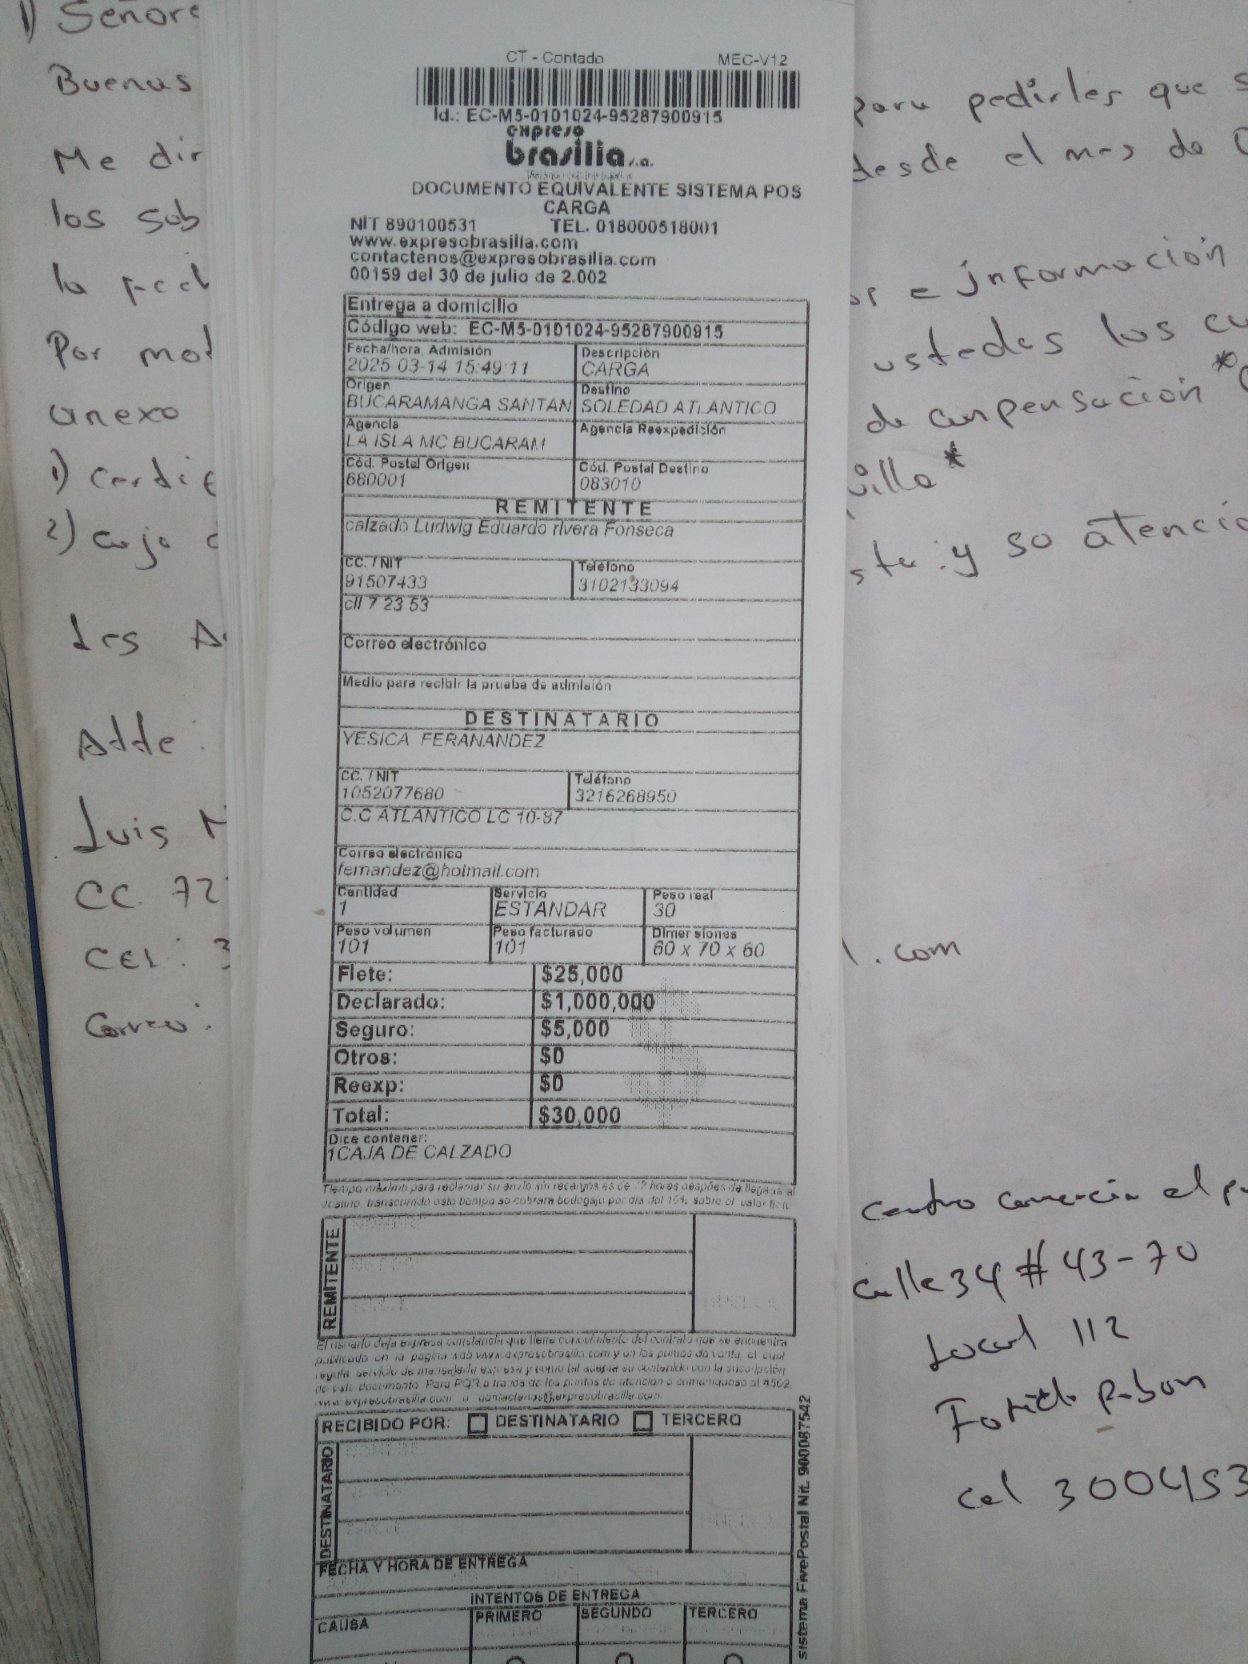 1) Señore
Buenas
Me dir
los sub
Por mot
anexo
1)
2) caja
Adde:
Luis
CC. 72
CEL: 3
Correo:
CT - Contado MEC-V12
Id.: EC-M5-0101024-95287900915
expreso
brasilia s.a.
DOCUMENTO EQUIVALENTE SISTEMA POS
CARGA
NIT 890100531 TEL. 018000518001
www.expresobrasilia.com
contactenos@expresobrasilia.com
00159 del 30 de julio de 2.002
Entrega a domicilio
Código web: EC-M5-0101024-95287900915
Fecha/hora Admisión Descripción
2025-03-14 15:49:11 CARGA
Origen Destino
BUCARAMANGA SANTAN SOLEDAD ATLANTICO
Agencia Agencia Reexpedición
LA ISLA MC BUCARAM
Cód. Postal Origen Cód. Postal Destino
680001 083010
REMITENTE
calzado Ludwig Eduardo rivera Fonseca
CC. / NIT Teléfono
91507433 3102133094
cll 7 23 53
Correo electrónico
Medio para recibir la prueba de admisión
DESTINATARIO
YESICA FERANANDEZ
CC. / NIT Teléfono
1052077680 3216268950
C.C ATLANTICO LC 10-87
Correo electrónico
fernandez@hotmail.com
Cantidad Servicio Peso real
1 ESTANDAR 30
Peso volumen Peso facturado Dimensiones
101 101 60 x 70 x 60
Flete: $25,000
Declarado: $1,000,000
Seguro: $5,000
Otros: $0
Reexp: $0
Total: $30,000
Dice contener:
1CAJA DE CALZADO
Tiempo máximo para reclamar su envío sin recargos es de 72 horas después de llegada al
destino, transcurrido este tiempo se cobrara bodegaje por día del 10% sobre el valor flete.
REMITENTE
El usuario deja expresa constancia que tiene conocimiento del contrato que se encuentra
publicado en la pagina web www.expresobrasilia.com y en los puntos de venta, el cual
regula servicio de mensajería expresa y como tal acepta su contenido con la suscripción
de este documento. Para PQR a través de los puntos de atención o comuníquese al #502,
www.expresobrasilia.com o contactenos@expresobrasilia.com
RECIBIDO POR: DESTINATARIO TERCERO
DESTINATARIO
FECHA Y HORA DE ENTREGA
INTENTOS DE ENTREGA
CAUSA PRIMERO SEGUNDO TERCERO
sistema FivePostal Nit. 900087542
para pedirles que s
desde el mes de
e información
ustedes los cu
de compensación *
illa *
y so atencio
l.com
calle 34 # 43-70
Local 112
cel 300453